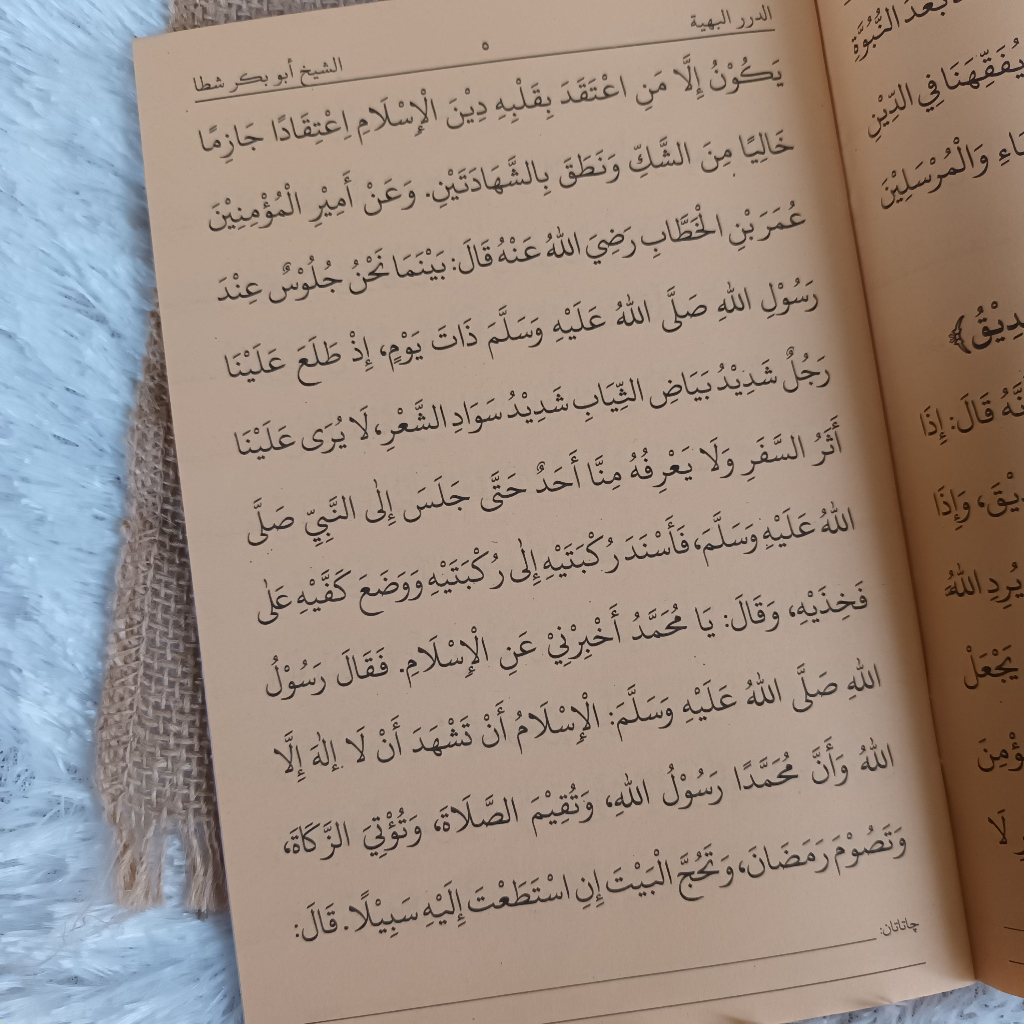 الدرر البهية
٥
الشيخ أبو بكر شطا
يَكُوْنُ إِلَّا مَنِ اعْتَقَدَ بِقَلْبِهِ دِيْنَ الْإِسْلَامِ اِعْتِقَادًا جَازِمًا
خَالِيًا مِنَ الشَّكِّ وَنَطَقَ بِالشَّهَادَتَيْنِ. وَعَنْ أَمِيْرِ الْمُؤْمِنِيْنَ
عُمَرَ بْنِ الْخَطَّابِ رَضِيَ اللهُ عَنْهُ قَالَ: بَيْنَمَا نَحْنُ جُلُوْسٌ عِنْدَ
رَسُوْلِ اللهِ صَلَّى اللهُ عَلَيْهِ وَسَلَّمَ ذَاتَ يَوْمٍ، إِذْ طَلَعَ عَلَيْنَا
رَجُلٌ شَدِيْدُ بَيَاضِ الثِّيَابِ شَدِيْدُ سَوَادِ الشَّعْرِ، لَا يُرَى عَلَيْنَا
أَثَرُ السَّفَرِ وَلَا يَعْرِفُهُ مِنَّا أَحَدٌ حَتَّى جَلَسَ إِلَى النَّبِيِّ صَلَّى
اللهُ عَلَيْهِ وَسَلَّمَ، فَأَسْنَدَ رُكْبَتَيْهِ إِلَى رُكْبَتَيْهِ وَوَضَعَ كَفَّيْهِ عَلَى
فَخِذَيْهِ، وَقَالَ: يَا مُحَمَّدُ أَخْبِرْنِيْ عَنِ الْإِسْلَامِ. فَقَالَ رَسُوْلُ
اللهِ صَلَّى اللهُ عَلَيْهِ وَسَلَّمَ: الْإِسْلَامُ أَنْ تَشْهَدَ أَنْ لَا إِلٰهَ إِلَّا
اللهُ وَأَنَّ مُحَمَّدًا رَسُوْلُ اللهِ، وَتُقِيْمَ الصَّلَاةَ، وَتُؤْتِيَ الزَّكَاةَ،
وَتَصُوْمَ رَمَضَانَ، وَتَحُجَّ الْبَيْتَ إِنِ اسْتَطَعْتَ إِلَيْهِ سَبِيْلًا. قَالَ:
چاتاتان:
بَعْدَ النُّبُوَّةِ
يُفَقِّهَنَا فِي الدِّيْنِ
وَالْمُرْسَلِيْنَ
قَالَ: إِذَا
وَإِذَا
يُرِدِ اللهُ
يَجْعَلْ
لَا